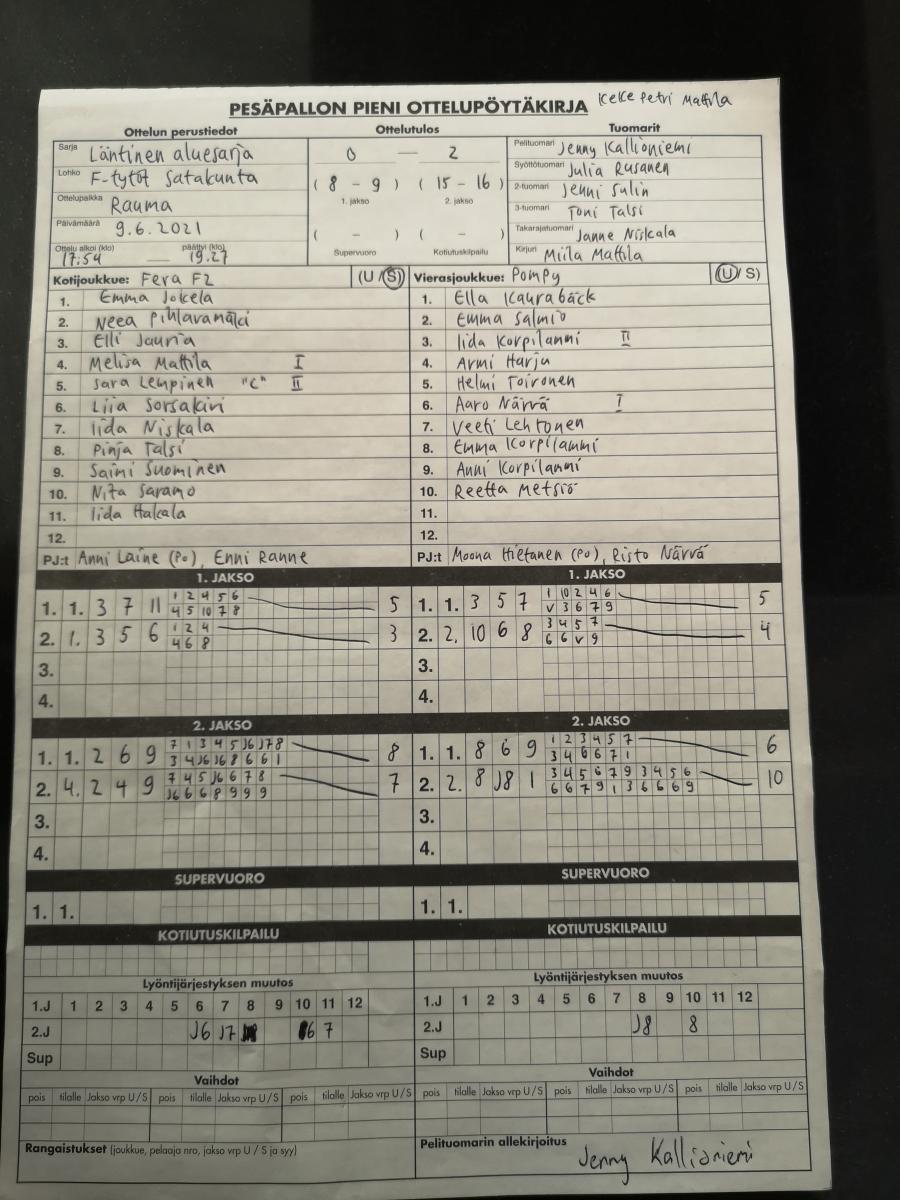 PESÄPALLON PIENI OTTELUPÖYTÄKIRJA Keke Petri Mattila
Ottelun perustiedot
Sarja Läntinen aluesarja
Lohko F-tytöt Satakunta
Ottelupaikka Rauma
Päivämäärä 9.6.2021
Ottelu alkoi (klo) 17:54 — päättyi (klo) 19.27
Ottelutulos
0 — 2
(8 - 9) (15 - 16)
1. jakso 2. jakso
( - ) ( - )
Supervuoro Kotiutuskilpailu
Tuomarit
Pelituomari Jenny Kallioniemi
Syöttötuomari Julia Rusanen
2-tuomari Jenni Sulin
3-tuomari Toni Talsi
Takarajatuomari Janne Niskala
Kirjuri Miila Mattila
Kotijoukkue: Fera F2 (U/S)
1. Emma Jokela
2. Neea Pihlavamäki
3. Elli Jauria
4. Melisa Mattila I
5. Sara Lempinen "C" II
6. Liia Sorsakivi
7. Iida Niskala
8. Pinja Talsi
9. Saimi Suominen
10. Nita Saramo
11. Iida Hakala
12.
PJ:t Anni Laine (Po), Enni Ranne
Vierasjoukkue: Pompy (U/S)
1. Ella Kauraback
2. Emma Salmio
3. Iida Korpilammi II
4. Armi Harju
5. Helmi Toivonen
6. Aaro Närvä I
7. Veeti Lehtonen
8. Emma Korpilammi
9. Anni Korpilammi
10. Reetta Metsiö
11.
12.
PJ:t Moona Hietanen (Po), Risto Närvä
1. JAKSO
1. 1. 3 7 11 1 2 4 5 6 5
4 5 10 7 8
2. 1. 3 5 6 1 2 4 3
4 6 8
3.
4.
1. JAKSO
1. 1. 3 5 7 1 10 2 4 6 5
V 3 6 7 9
2. 2. 10 6 8 3 4 5 7 4
6 6 V 9
3.
4.
2. JAKSO
1. 1. 2 6 9 7 1 3 4 5 J6 J7 8 8
3 4 J6 J6 8 6 6 1
2. 4. 2 4 9 7 4 5 J6 6 7 8 7
J6 6 6 8 9 9 9
3.
4.
2. JAKSO
1. 1. 8 6 9 1 2 3 4 5 7 6
3 4 6 6 7 1
2. 2. 8 J8 1 3 4 5 6 7 9 3 4 5 6 10
6 6 7 9 1 3 6 6 6 9
3.
4.
SUPERVUORO
1. 1.
SUPERVUORO
1. 1.
KOTIUTUSKILPAILU
KOTIUTUSKILPAILU
Lyöntijärjestyksen muutos
1.J 1 2 3 4 5 6 7 8 9 10 11 12
2.J J6 J7 6 7
Sup
Lyöntijärjestyksen muutos
1.J 1 2 3 4 5 6 7 8 9 10 11 12
2.J J8 8
Sup
Vaihdot
pois tilalle Jakso vrp U/S pois tilalle Jakso vrp U/S pois tilalle Jakso vrp U/S
Vaihdot
pois tilalle Jakso vrp U/S pois tilalle Jakso vrp U/S pois tilalle Jakso vrp U/S
Rangaistukset (joukkue, pelaaja nro, jakso vrp U / S ja syy)
Pelituomarin allekirjoitus
Jenny Kallioniemi